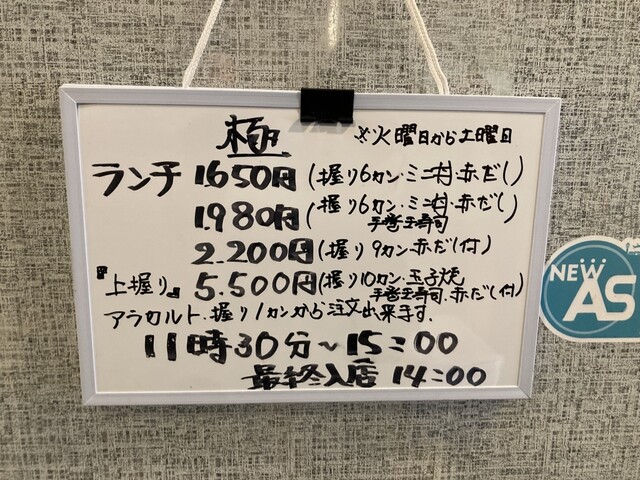 極
※火曜日から土曜日
ランチ 1.650円(握り6カン・ミニ丼・赤だし)
1.980円(握り6カン・ミニ丼・赤だし
手巻寿司)
2.200円(握り9カン赤だし付)
『上握り』5.500円(握り10カン・玉子焼
手巻寿司・赤だし付)
アラカルト・握り1カンから注文出来ます.
11時30分~15:00
最終入店 14:00
NEW
AS